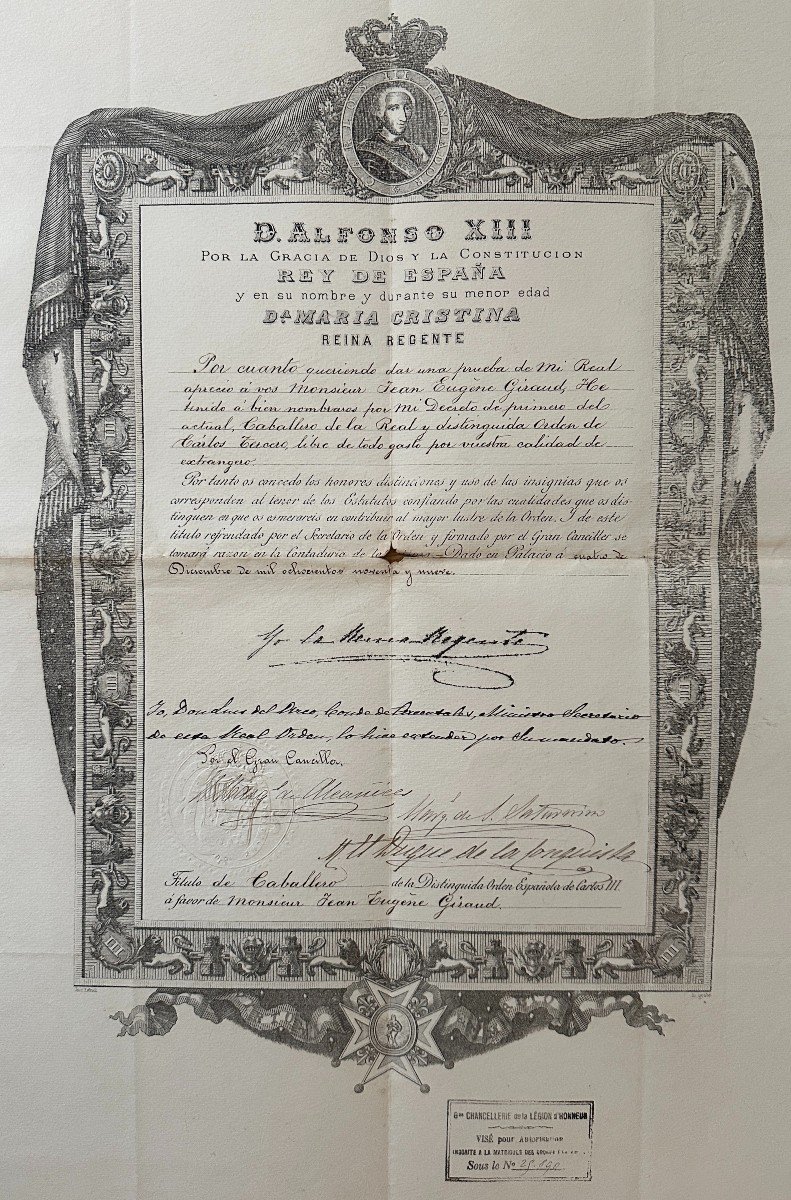 CARLOS III FUNDADOR
D. ALFONSO XIII
POR LA GRACIA DE DIOS Y LA CONSTITUCION
REY DE ESPAÑA
y en su nombre y durante su menor edad
Dª MARIA CRISTINA
REINA REGENTE
Por cuanto queriendo dar una prueba de Mi Real
aprecio á vos Monsieur Jean Eugène Giraud, He
tenido á bien nombraros por Mi Decreto de primero del
actual, Caballero de la Real y distinguida Orden de
Cárlos Tercero, libre de todo gasto por vuestra calidad de
extrangero.
Por tanto os concedo los honores distinciones y uso de las insignias que os
corresponden al tenor de los Estatutos confiando por las cualidades que os dis-
tinguen en que os esmerareis en contribuir al mayor lustre de la Orden. Y de este
título refrendado por el Secretario de la Orden y firmado por el Gran Canciller se
tomará razon en la Contaduria de la Dado en Palacio á cuatro de
Diciembre de mil ochocientos noventa y nueve.
Yo la Reina Regente
Yo, Don Luis del Arco, Conde de Arcentales, Ministro Secretario
de esta Real Orden, lo hice extender por Su mandato.
Por el Gran Canciller.
de Alcañices
Marq. de S. Saturnino
El Duque de la Conquista
Título de Caballero de la Distinguida Orden Española de Carlos III.
á favor de Monsieur Jean Eugène Giraud.
III
III
III
III
III
III
Gde CHANCELLERIE de la LÉGION d'HONNEUR
VISÉ pour AUTORISATION
INSCRITE A LA MATRICULE DES
Sous le Nº